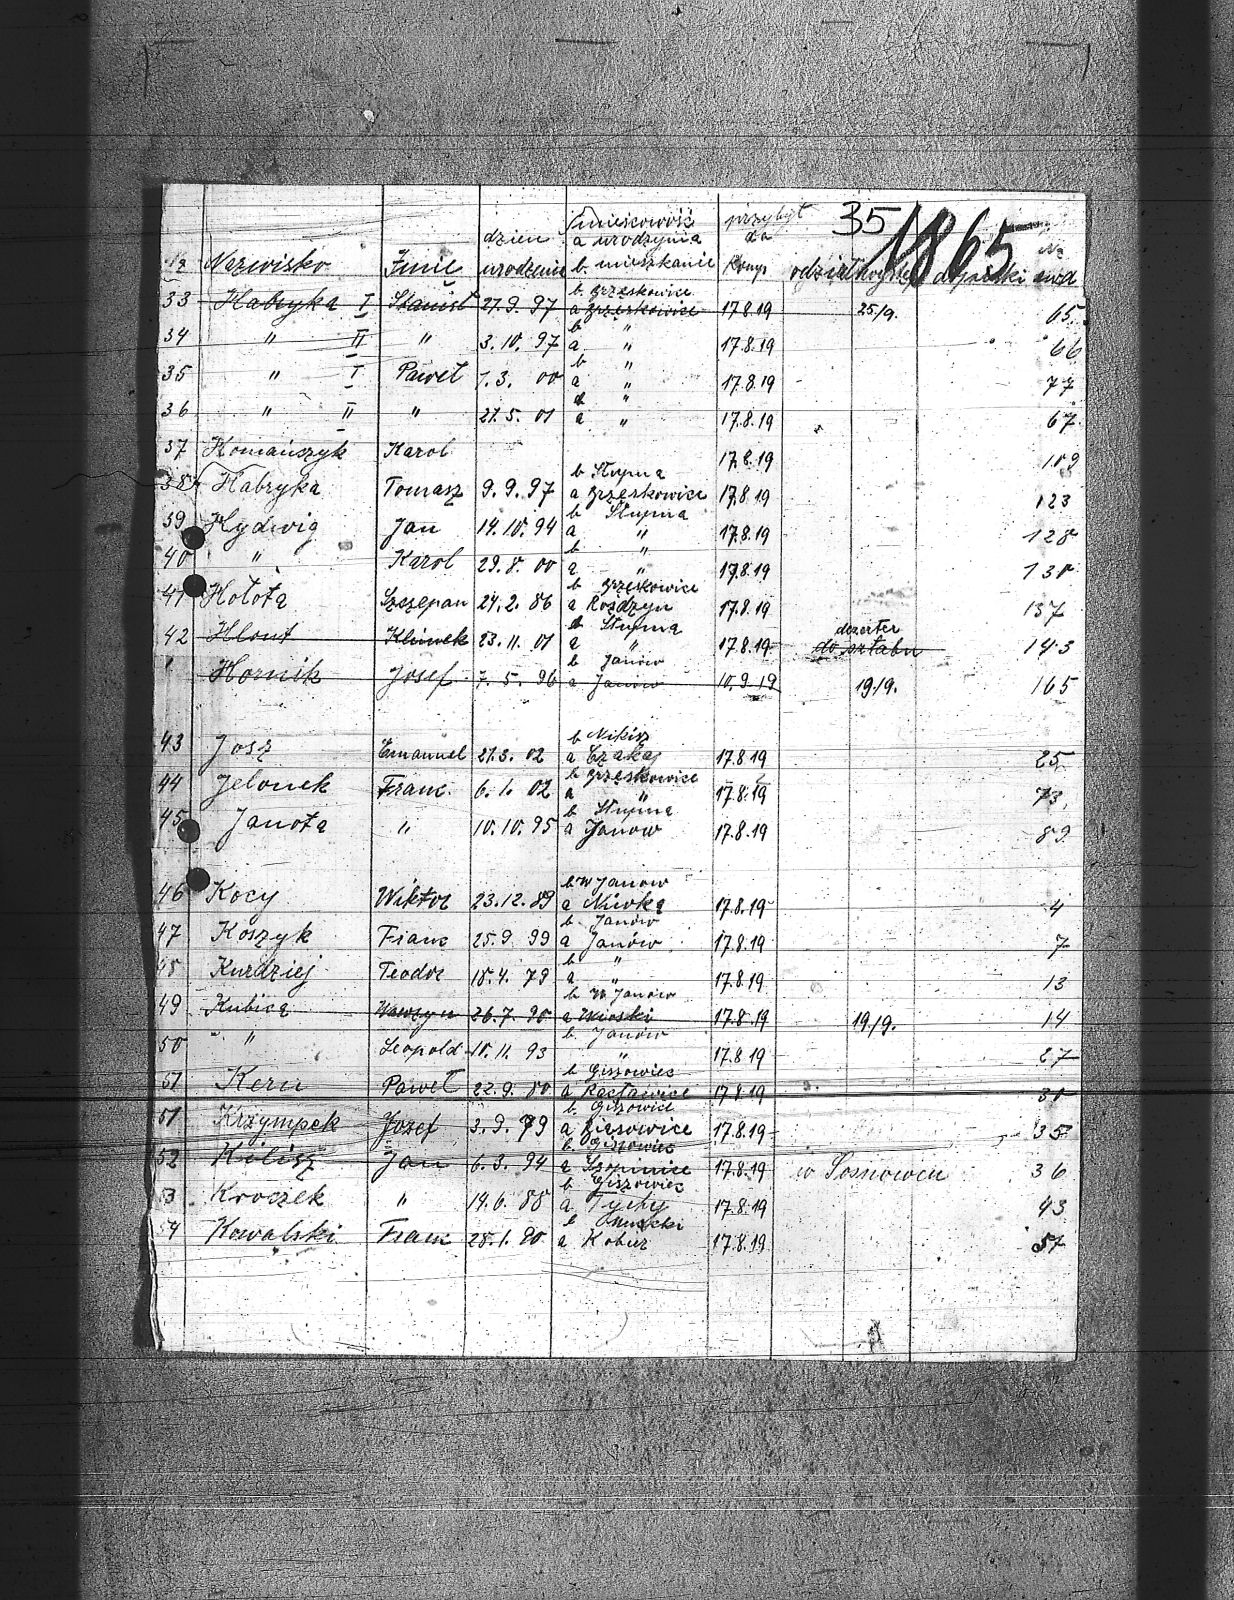 35 1865
Nazwisko Imie dzien urodzenia miejscowość a urodzynia b. mieszkanie przybył do Komp. dopiski
33 Habryka I Stanisł 27.9.97 b. Brzęskowice a Brzęskowice 17.8.19 25/9. 65.
34 " II " 3.10.97 b a " 17.8.19 66
35 " I Paweł 1.3.00 b " a " 17.8.19 77
36 " II " 21.5.01 " a " 17.8.19 67
37 Homańczyk Karol 17.8.19 109
38 Habryka Tomasz 9.9.97 b Słupna a Brzęskowice 17.8.19 123
39 Hydwig Jan 14.10.94 b Słupna a " 17.8.19 128
40 " Karol 29.8.00 b " a " 17.8.19 130
41 Hołota Szczepan 24.2.86 b Brzęskowice a Rozdzyn 17.8.19 137
42 Hlout Klimek 23.11.01 b Słupna a " 17.8.19 dezerter do sztabu 143
Hornik Josef 7.5.96 b Janów a Janów 10.9.19 19/9. 165
43 Josz Emanuel 21.3.02 b a 17.8.19 25
44 Jelonek Franc. 6.1.02 b Brzęskowice a " 17.8.19 73
45 Janota " 10.10.95 b Słupna a Janow 17.8.19 89
46 Kocy Wiktor 23.12.89 b W Janow a Niwka 17.8.19 4
47 Koszyk Franc 25.9.99 b. Janów a Janów 17.8.19 7
48 Kurdziej Teodor 18.4.79 b " a " 17.8.19 13
49 Kubica Wawszyn 26.7.90 b W Janów a 17.8.19 19/9. 14
50 " Leopold 10.11.93 b. Janów " 17.8.19 27
51 Kern Paweł 22.9.80 b Giszowiec a Racławice 17.8.19 30
51 Krzympek Jozef 3.9.79 b. Giszowiec a 17.8.19 35
52 Kilisz Jan 6.3.94 b Giszowiec a Szopinice 17.8.19 w Sosnowcu 36
53 Kroczek " 14.6.88 b Giszowiec a Tychy 17.8.19 43
54 Kowalski Franc 28.1.80 b a Kobier 17.8.19 57